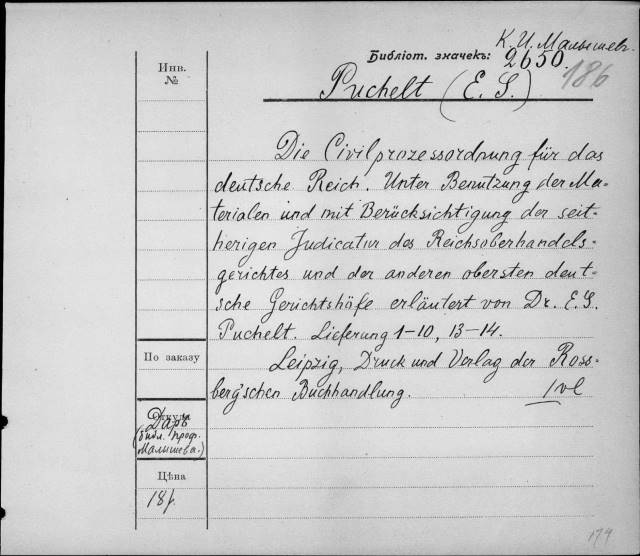 К. И. Малышев.
Библіот. значекъ: 2650.
186
Инв.
№
Puchelt (E. S.)
Die Civilprozessordnung für das
deutsche Reich. Unter Benutzung der Ma-
terialen und mit Berücksichtigung der seit-
herigen Judicatur des Reichsoberhandels-
gerichtes und der anderen obersten deut-
sche Gerichtshöfe erläutert von Dr. E. S.
Puchelt. Lieferung 1-10, 13-14.
Leipzig, Druck und Verlag der Ross-
berg'schen Buchhandlung.
1 vl
По заказу
Откуда
Даръ
(библ. проф.
Малышева.)
Цѣна
18 р.
174